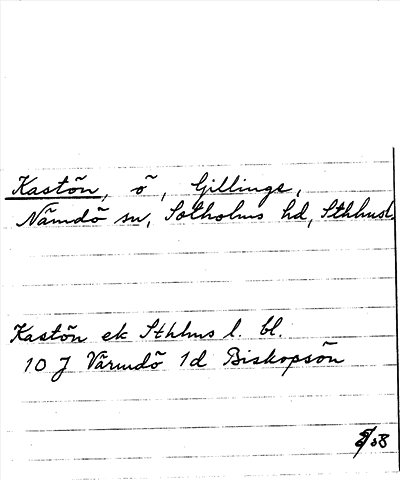 Kastön, ö, Gillinge,
Nämdö sn, Sotholms hd, Sthlmsl.
Kastön ek Sthlms l. bl.
10 J Värmdö 1d Biskopsön